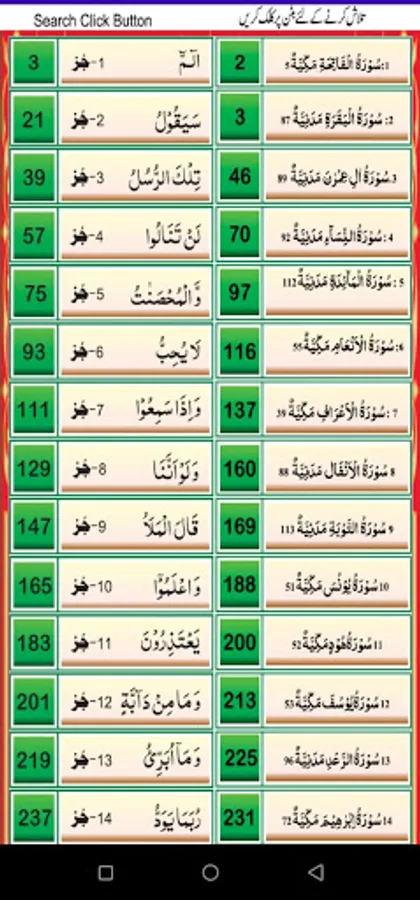 Search Click Button تلاش کرنے کے لئے بٹن پر کلک کریں
1: سُوْرَةُ الْفَاتِحَةِ مَكِّيَّةٌ 5 2 الٓمّٓ 1-جُز 3
2: سُوْرَةُ الْبَقَرَةِ مَدَنِيَّةٌ 87 3 سَيَقُوْلُ 2-جُز 21
3. سُوْرَةُ اٰلِ عِمْرٰنَ مَدَنِيَّةٌ 89 46 تِلْكَ الرُّسُلُ 3-جُز 39
4: سُوْرَةُ النِّسَآءِ مَدَنِيَّةٌ 92 70 لَنْ تَنَالُوا 4-جُز 57
5: سُوْرَةُ الْمَآئِدَةِ مَدَنِيَّةٌ 112 97 وَّالْمُحْصَنٰتُ 5-جُز 75
6: سُوْرَةُ الْاَنْعَامِ مَكِّيَّةٌ 55 116 لَا يُحِبُّ 6-جُز 93
7: سُوْرَةُ الْاَعْرَافِ مَكِّيَّةٌ 39 137 وَاِذَا سَمِعُوْا 7-جُز 111
8 سُوْرَةُ الْاَنْفَالِ مَدَنِيَّةٌ 88 160 وَلَوْ اَنَّنَا 8-جُز 129
9 سُوْرَةُ التَّوْبَةِ مَدَنِيَّةٌ 113 169 قَالَ الْمَلَاُ 9-جُز 147
10 سُوْرَةُ يُوْنُسَ مَكِّيَّةٌ 51 188 وَاعْلَمُوْٓا 10-جُز 165
11 سُوْرَةُ هُوْدٍ مَكِّيَّةٌ 52 200 يَعْتَذِرُوْنَ 11-جُز 183
12 سُوْرَةُ يُوْسُفَ مَكِّيَّةٌ 53 213 وَمَا مِنْ دَآبَّةٍ 12-جُز 201
13 سُوْرَةُ الرَّعْدِ مَدَنِيَّةٌ 96 225 وَمَآ اُبَرِّئُ 13-جُز 219
14 سُوْرَةُ اِبْرٰهِيْمَ مَكِّيَّةٌ 72 231 رُبَمَا يَوَدُّ 14-جُز 237